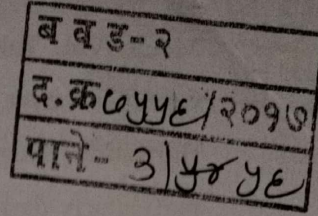 ब ब ड-२
द.क्र ७५५६/२०१७
पाने- 3/ ५६